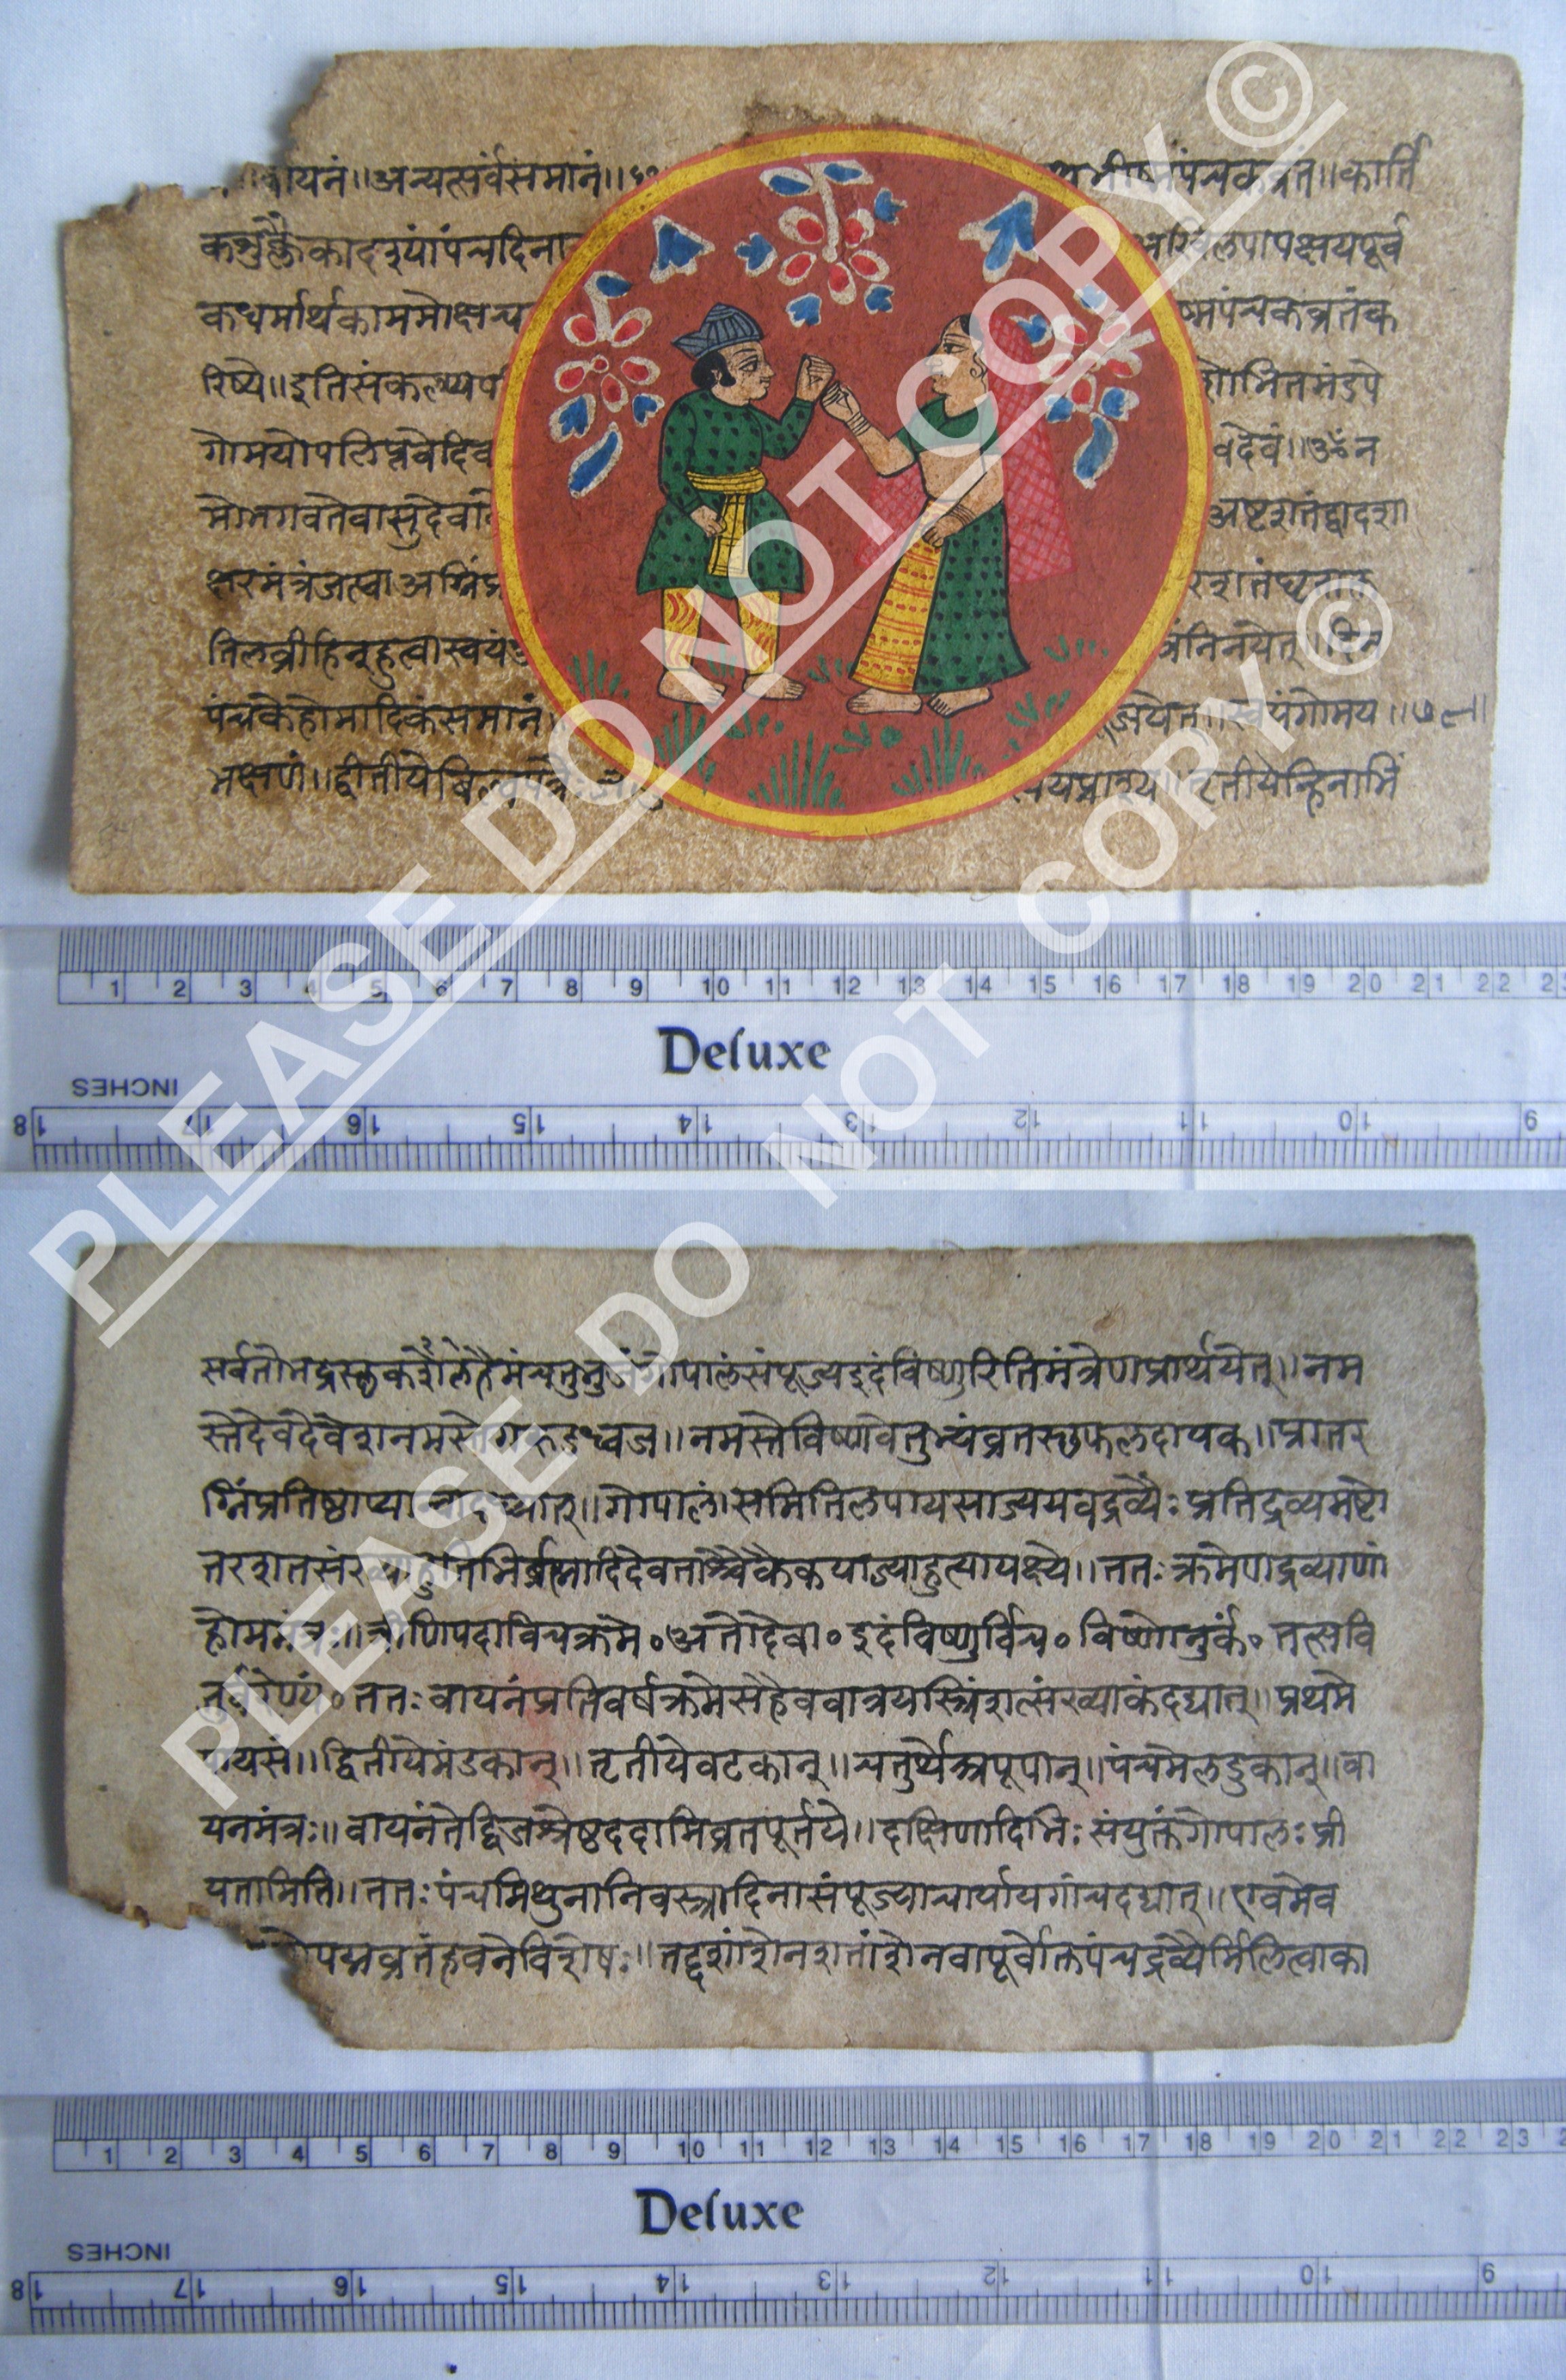 यनं॥अन्यत्सर्वसमानं॥ पंचकव्रतं॥कार्ति
कशुक्लैकादश्यांपंचदिना पापक्षयपूर्व
कधर्मार्थकाममोक्ष ष्मपंचकव्रतंक
रिष्ये॥इतिसंकल्प्य शोभितमंडपे
गोमयोपलिप्तवेदि वदेवं॥ॐन
मोभगवतेवासुदेवा अष्टशतंद्वादशा
क्षरमंत्रंजप्त्वा
तिलव्रीहिन्हुत्वास्वयं
पंचकेहोमादिकंसमानं॥ यंगोमय॥७९॥
भक्षणं॥द्वीतीये तृतीयेन्हिनाभिं
1 2 3 4 5 6 7 8 9 10 11 12 13 14 15 16 17 18 19 20 21 22 2
Deluxe
INCHES
18 17 16 15 14 13 12 11 10 9
सर्वतोभद्रस्छ गोपालंसंपूज्यइदंविष्णुरितिमंत्रेणप्रार्थयेत्॥नम
स्तेदेवदेवेशनमस्तेगरुडध्वज॥नमस्तेविष्णवेतुभ्यंव्रतस्छफलदायक॥प्रातर
ग्निंप्रतिष्ठाप्या गोपालं।समितिलपायसाज्ययवद्रव्यैः प्रतिद्रव्यमष्टो
तरशतसं तिभिर्ब्रह्मादिदेवताश्चैकैकयाज्याहुत्यायक्ष्ये॥ततःक्रमेणद्रव्याणां
होममंत्रः॥त्रीणिपदाविचक्रमे॰अतोदेवा॰इदंविष्णुर्विच॰विष्णोनुर्कं॰तत्सवि
तुर्वरेण्यं॰ततःवायनंप्रतिवर्षक्रमेसहैववात्रयस्त्रिंशत्संख्याकंदद्यात्॥प्रथमे
पायसं॥द्वितीयेमंडकान्॥तृतीयेवटकान्॥चतुर्थेअपूपान्॥पंचमेलडुकान्॥वा
यनमंत्रः॥वायनंतेद्विजश्रेष्ठददामिव्रतपूर्तये॥दक्षिणादिभिःसंयुक्तंगोपालःप्री
यतामिति॥ततःपंचमिथुनानिवस्त्रादिनासंपूज्याचार्यायगांचदद्यात्॥एवमेव
पद्मव्रतंहवनेविशेषः॥तद्दशांशेनशतांशेनवापूर्वोक्तपंचद्रव्यैर्मिलित्वाका
1 2 3 4 5 6 7 8 9 10 11 12 13 14 15 16 17 18 19 20 21 22 23
Deluxe
INCHES
18 17 16 15 14 13 12 11 10 9
PLEASE DO NOT COPY ©
PLEASE DO NOT COPY ©